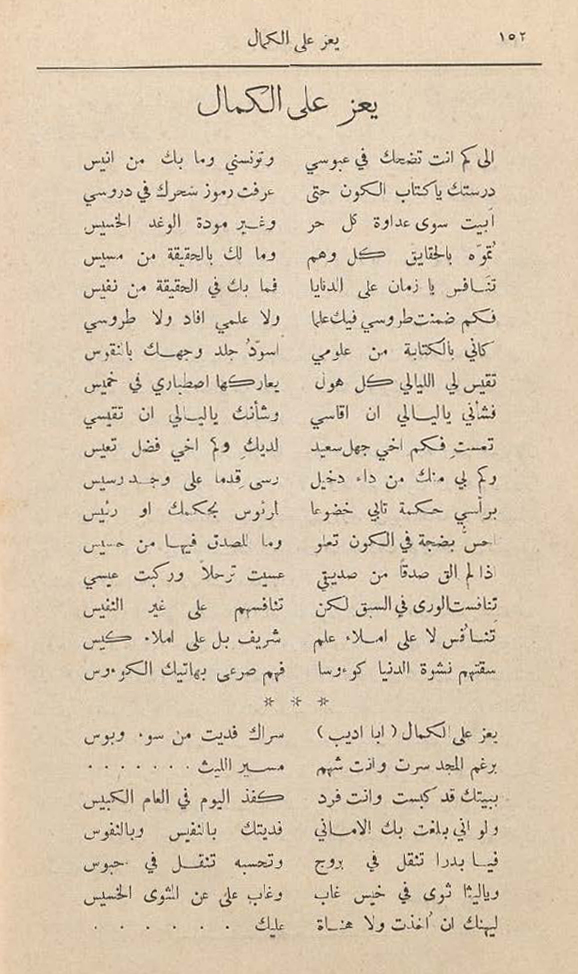 ١٥٢ يعز على الكمال
يعز على الكمال
الى كم انت تضحك في عبوسي وتونسني وما بك من انيس
درستك ياكتاب الكون حتى عرفت رموز سحرك في دروسي
ابيت سوى عداوة كل حر وغير مودة الوغد الخسيس
تموّه بالحقايق كل وهم وما لك بالحقيقة من مسيس
تنافس يا زمان على الدنايا فما بك في الحقيقة من نفيس
فكم ضمنت طروسي فيك علما ولا علمي افاد ولا طروسي
كاني بالكتابة من علومي اسوّد جلد وجهك بالنقوس
تقيس لي الليالي كل هول يعاركها اصطباري في خميس
فشأني ياليالي ان اقاسي وشأنك ياليالي ان تقيسي
تعست فكم اخي جهل سعيد لديك ولم اخي فضل تعيس
وكم بي منك من داء دخيل رسى قدما على وجد رسيس
برأسي حكمة تابي خضوعا لمرئوس بحكمك او رئيس
احسّ بضجة في الكون تعلو وما للصدق فيها من حسيس
اذا لم الق صدقا من صديقي عسيت ترحلا وركبت عيسي
تنافست الورى في السبق لكن تنافسهم على غير النفيس
تنافس لا على املاء علم شريف بل على املاء كيس
سقتهم نشوة الدنيا كوءوسا فهم صرعى بهاتيك الكوءوس
* * *
يعز على الكمال ( ابا اديب ) سراك فديت من سوء وبوس
برغم المجد سرت وانت شهم مسير الليث . . . . . . .
ببيتك قد كبست وانت فرد كفذ اليوم في العام الكبيس
ولو اني بلغت بك الاماني فديتك بالنفيس وبالنفوس
فيا بدرا تنقل في بروج وتحسبه تنقل في حبوس
وياليثا ثوى في خيس غاب وغاب على عن المثوى الخسيس
ليهنك ان اُخذت ولا هناة عليك . . . . . .